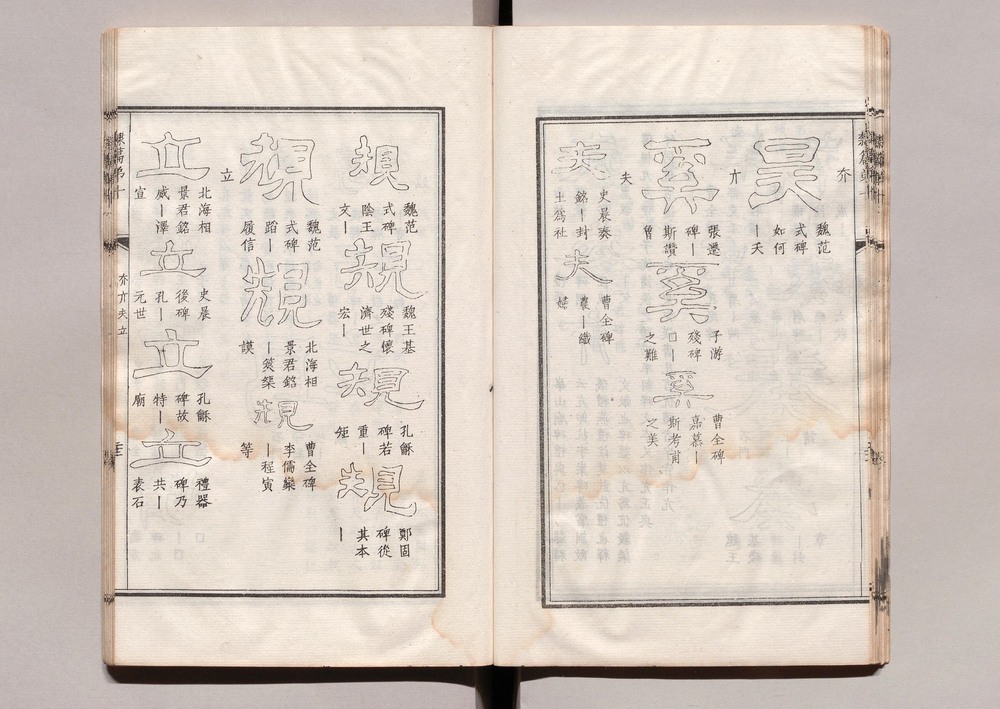 夰
昊
魏范
式碑
如何
｜天
亣
奚
張遷
碑｜
斯讚
曾
奚
子游
殘碑
口｜
之難
奚
曹全碑
嘉慕｜
斯考甫
之美
夫
夫
史晨奏
銘｜封
土爲社
夫
曹全碑
農｜織
婦
規
魏范
式碑
陰王
文｜
規
魏王基
殘碑懷
濟世之
宏｜
規
孔龢
碑若
重｜
矩
規
鄭固
碑從
其本
｜
規
魏范
式碑
蹈｜
履信
規
北海相
景君銘
｜筴榘
謨
規
曹全碑
李儒欒
｜程寅
等
立
立
北海相
景君銘
威｜澤
宣
立
史晨
後碑
孔｜
元世
立
孔龢
碑故
特｜
廟
立
禮器
碑乃
共｜
表石
隸篇弟十
夰亣夫立